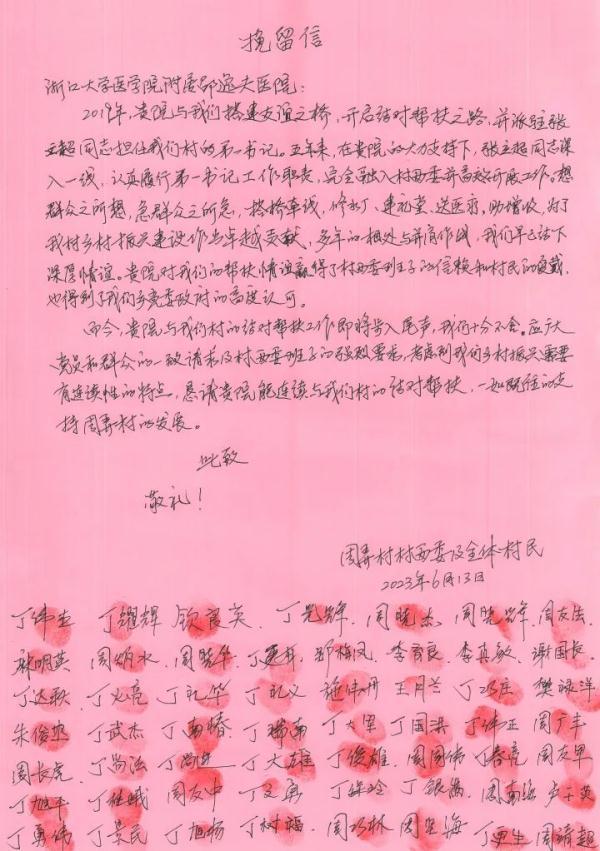 挽留信
浙江大学医学院附属邵逸夫医院：
2019年，贵院与我们搭建友谊之桥，开启结对帮扶之路，并派驻张
立超同志担任我们村的第一书记。五年来，在贵院的大力支持下，张立超同志深
入一线，认真履行第一书记工作职责，完全融入村两委并高效开展工作。想
群众之所想，急群众之所急，搭桥牵线，修水厂、建礼堂、送医疗，助增收，为了
我村乡村振兴建设作出卓越贡献，多年的相处与并肩作战，我们早已结下
深厚情谊。贵院对我们的帮扶情谊赢得了村两委班子的信赖和村民的爱戴，
也得到了我们乡党委政府的高度认可。
而今，贵院与我们村的结对帮扶工作即将步入尾声，我们十分不舍。应广大
党员和群众的一致请求及村两委班子的强烈要求，考虑到我们乡村振兴需要
有连续性的特点，恳请贵院能连续与我们村的结对帮扶，一如既往的支
持周弄村的发展。
此致
敬礼！
周弄村村两委及全体村民
2023年6月13日
丁伟生 丁耀辉 钦良英 丁光辉 周晓杰 周晓辉 周友法
麻明英 周炳水 周晓华 郑梅凤 李育良 李真敏 谢国长
丁达耿 丁火亮 丁礼华 丁礼义 施伟丹 王月兰 樊禄洋
朱俊忠 丁武杰 丁南椿 丁瑞南 丁大里 丁国梁 丁伟正 周广丰
周长虎 丁尚法 丁大雄 丁俊雄 周国伟 丁春亮 友里
丁旭平 丁桂娥 周友中 丁文勇 丁银满 周南海
丁勇伟 丁景民 丁旭杨 丁树福 周巧林 周里海 丁更生 周靖超